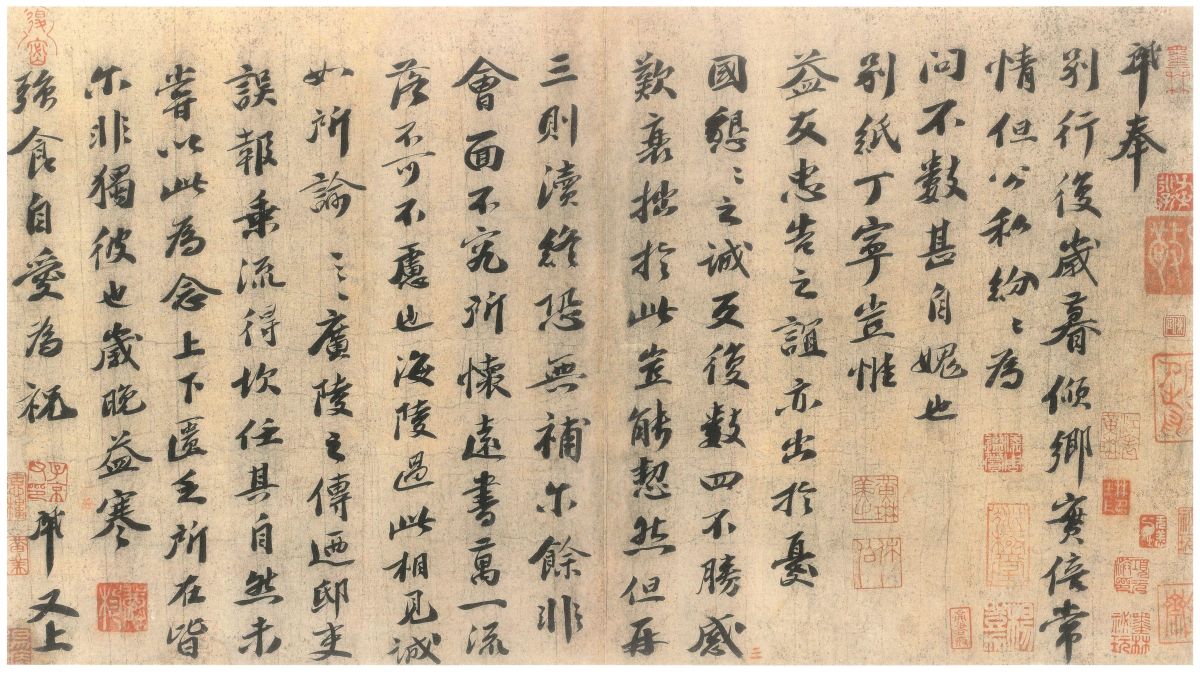 奉
別行後歲暮傾鄉實倍常
情但公私紛〻為
問不數甚自媿也
別紙丁寧豈惟
益友忠告之誼亦出於憂
國懇〻之誠反復數四不勝感
歎衰拙於此豈能恝然但再
三則瀆終恐無補尔餘非
會面不究所懷遠書萬一流
落不可不慮也海陵過此相見誠
如所諭〻〻廣陵之傳迺邸吏
誤報乘流得坎任其自然未
嘗以此為念上下匱乏所在皆
尔非獨彼也歲晚益寒
強食自愛為祝 又上